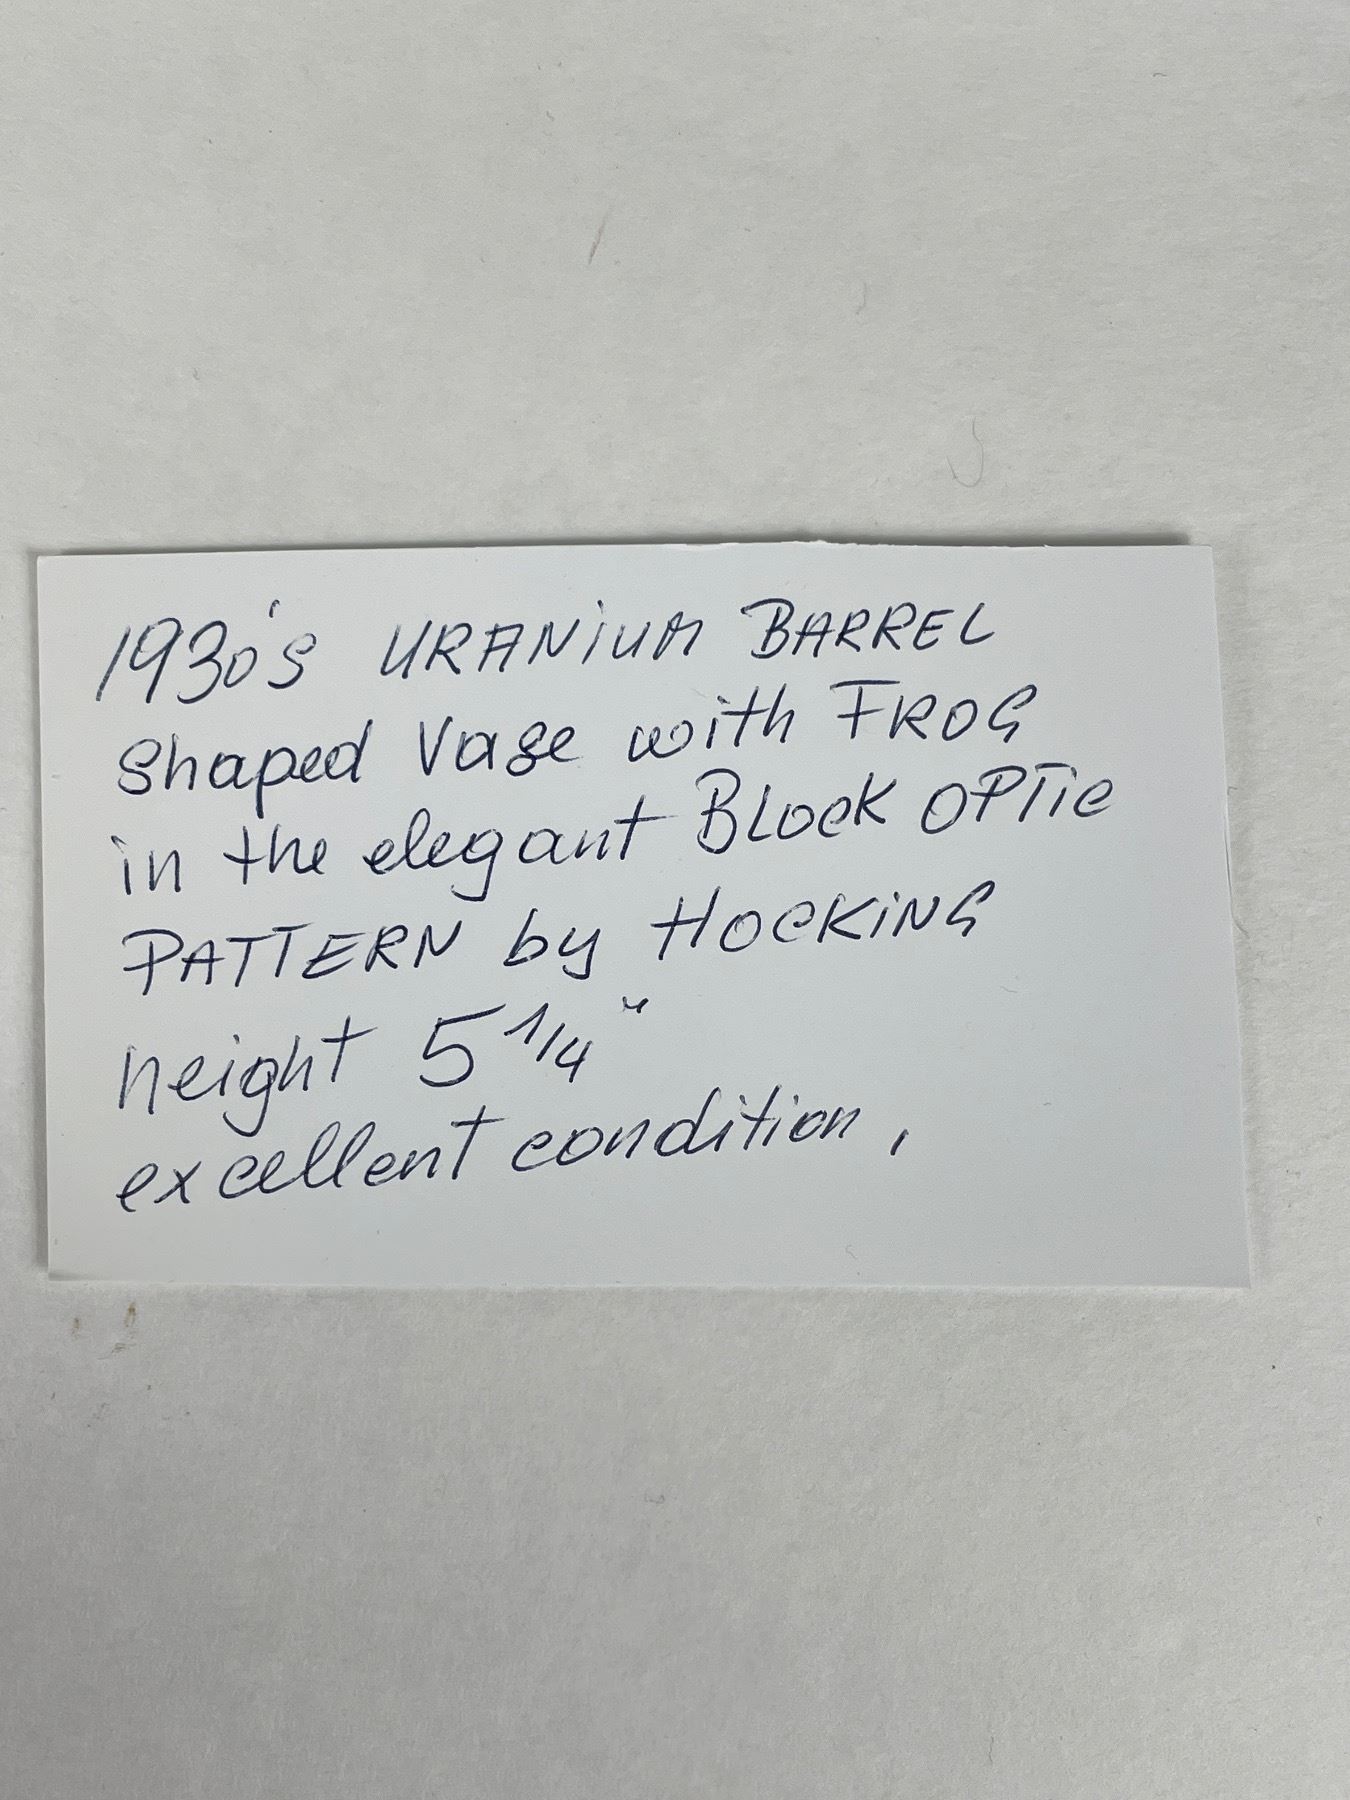 1930's URANiUM BARREL
shaped Vase with FROG
in the elegant BLock OPTic
PATTERN by HOCKiNG
height 5 1/4"
excellent condition,